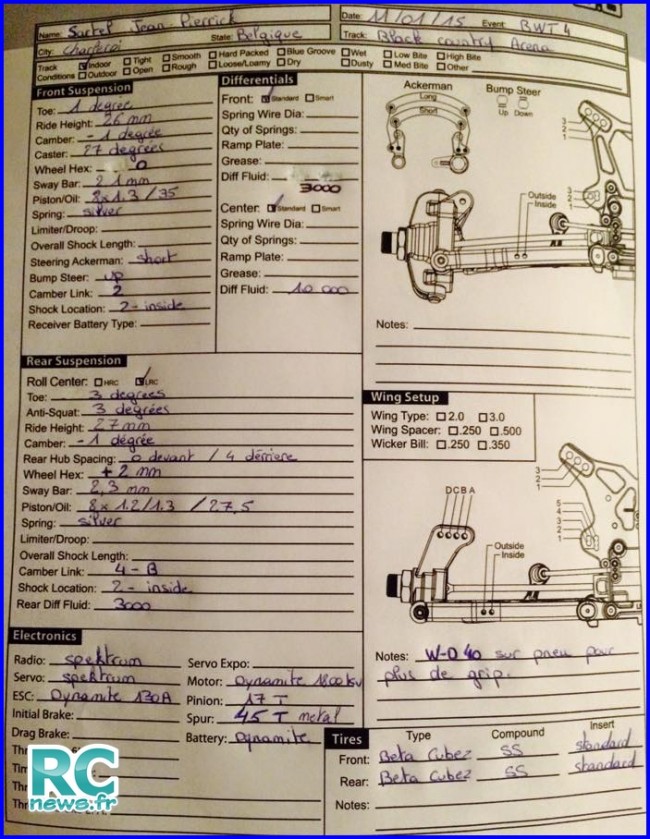 Name: Sartel Jean-Pierrick
Date: 11/01/15 Event: BWT 4
City: Charleroi State: Belgique
Track: Black country Arena
Track Conditions Indoor Outdoor Tight Open Smooth Rough Hard Packed Loose/Loamy Blue Groove Dry Wet Dusty Low Bite Med Bite High Bite Other
Front Suspension
Toe: 1 degrée
Ride Height: 26 mm
Camber: -1 degrée
Caster: 27 degrées
Wheel Hex: 0
Sway Bar: 2.1 mm
Piston/Oil: 8x1.3 /35
Spring: silver
Limiter/Droop:
Overall Shock Length:
Steering Ackerman: short
Bump Steer: up
Camber Link: 2
Shock Location: 2-inside
Receiver Battery Type:
Differentials
Front: Standard Smart
Spring Wire Dia:
Qty of Springs:
Ramp Plate:
Grease:
Diff Fluid: 3000
Center: Standard Smart
Spring Wire Dia:
Qty of Springs:
Ramp Plate:
Grease:
Diff Fluid: 10 000
Ackerman
Long
Short
Bump Steer
Up Down
3
2
1
Outside
Inside
3
2
1
Notes:
Rear Suspension
Roll Center: HRC LRC
Toe: 3 degrees
Anti-Squat: 3 degrées
Ride Height: 27 mm
Camber: -1 dégrée
Rear Hub Spacing: 0 devant / 4 dérriere
Wheel Hex: + 2 mm
Sway Bar: 2,3 mm
Piston/Oil: 8x1.2/1.3 /27,5
Spring: silver
Limiter/Droop:
Overall Shock Length:
Camber Link: 4-B
Shock Location: 2-inside
Rear Diff Fluid: 3000
Wing Setup
Wing Type: 2.0 3.0
Wing Spacer: .250 .500
Wicker Bill: .250 .350
DCBA
3
2
1
5
4
3
2
1
Outside
Inside
Notes: W-D 40 sur pneu pour
plus de grip.
Electronics
Radio: spektrum
Servo: spektrum
ESC: Dynamite 130A
Initial Brake:
Drag Brake:
Servo Expo:
Motor: Dynamite 1800kv
Pinion: 17 T
Spur: 45 T metal
Battery: Dynamite
Tires
Type Compound Insert
Front: Beta Cubez SS standard
Rear: Beta Cubez SS standard
Notes:
RC
news.fr